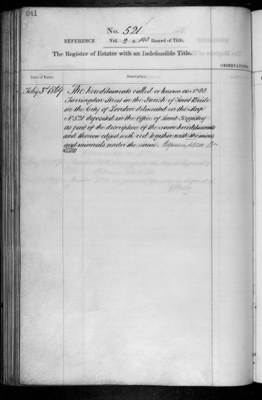 241
No. 521
REFERENCE Vol. 2 p. 140 Record of Title.
The Register of Estates with an Indefeasible Title.
OBSERVATIONS
Date of Entry. Description.
July 3rd 1869 The hereditaments called or known as No 33
Farringdon Street in the Parish of Saint Bride
in the City of London delineated in the Map
No 521 deposited in the Office of Land Registry
as part of the description of the same hereditaments
and thereon edged with red together with the mines
and minerals under the same.